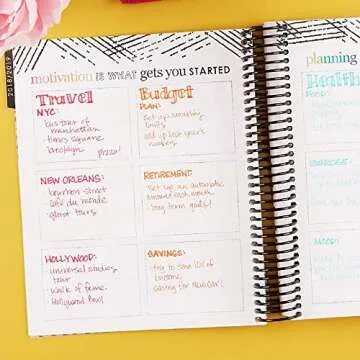 2018/2019
motivation IS WHAT gets you STARTED
Travel
NYC:
bus tour of
manhattan
times square
brooklyn pizza!
NEW ORLEANS:
bourbon street
café du monde
ghost tours
HOLLYWOOD:
universal studios
tour
walk of fame
Hollywood Bowl
Budget
PLAN:
set up monthly
bills
add up last year's
numbers
RETIREMENT:
Set up an automatic
amount each month
long term goals!
SAVINGS:
try to save 10% of
income
saving for New Car!
planning
Health
FOOD:
EXERCISE:
MOOD: